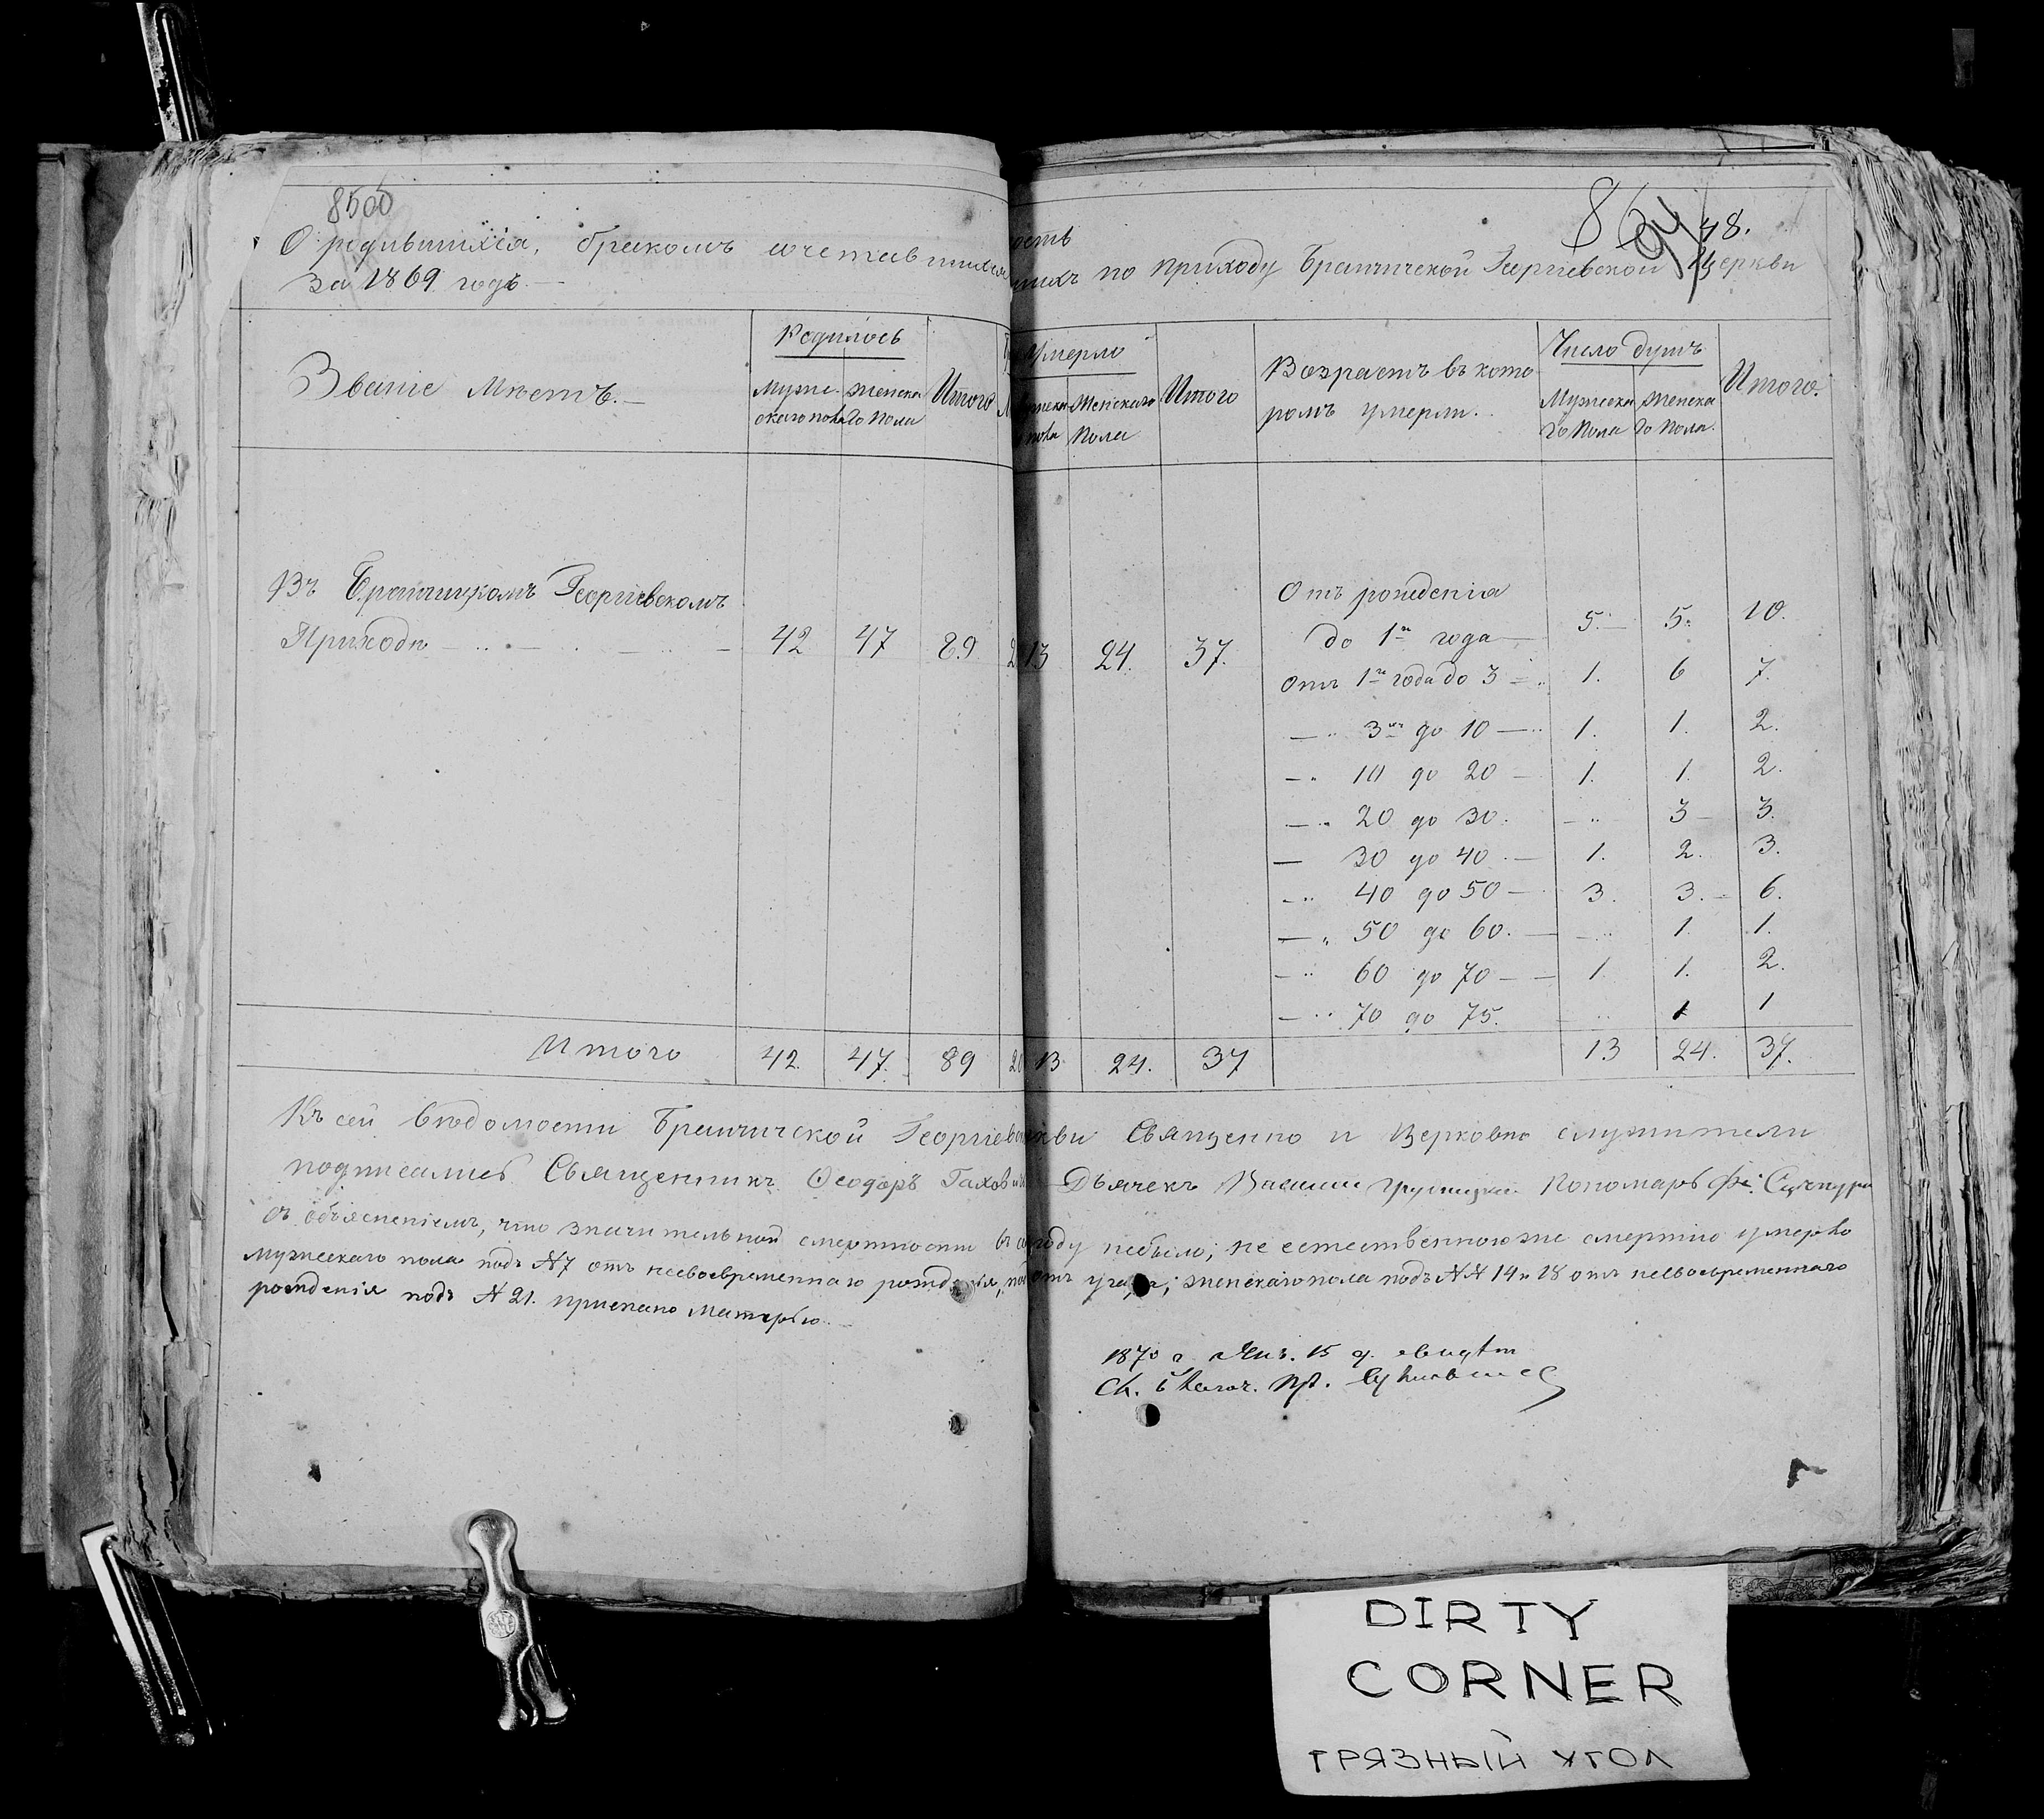 8500
86 94 48.
О родившихся, бракомъ сочетавшихся
ость
по приходу Браичической Георгіевской Церкви
за 1869 годъ.
Званіе Мѣстъ.
Родилось
Мужескаго пола
Женскаго пола
Итого
Умерло
Женскаго пола
Итого
Возрастъ въ которомъ умерли.
Число душъ
Мужескаго пола
Женскаго пола.
Итого.
Въ Георгіевскомъ
Приходѣ 42 47 89 13 24. 37.
Отъ рожденія
до 1го года 5. 5. 10.
Отъ 1го года до 3 1. 6 7.
— " 3хъ до 10 — 1. 1. 2.
— " 10 до 20 — 1. 1. 2.
— " 20 до 30. — " 3 3.
— 30 до 40. — 1. 2. 3.
— " 40 до 50 — 3. 3. 6.
— " 50 до 60. — " 1. 1.
— " 60 до 70 — 1. 1. 2.
— " 70 до 75. " 1 1
Итого 42. 47. 89 13 24. 37 13 24. 37.
Къ сей вѣдомости Георгіевской Священно и Церковно служители
подписались Священникъ Ѳеодоръ Дьячекъ Василій Пономарь
съ объясненіемъ, что значительной смертности въ году небыло, не естественною же смертію умерло
мужескаго пола подъ №7 отъ несвоевременнаго рожденія, женскаго пола подъ №№ 14 и 18 отъ несвоевременнаго
рожденія подъ № 21. приспано матерью.
1870 г. Янв. 15 д. свидѣт
DIRTY
CORNER
ГРЯЗНЫЙ УГОЛ